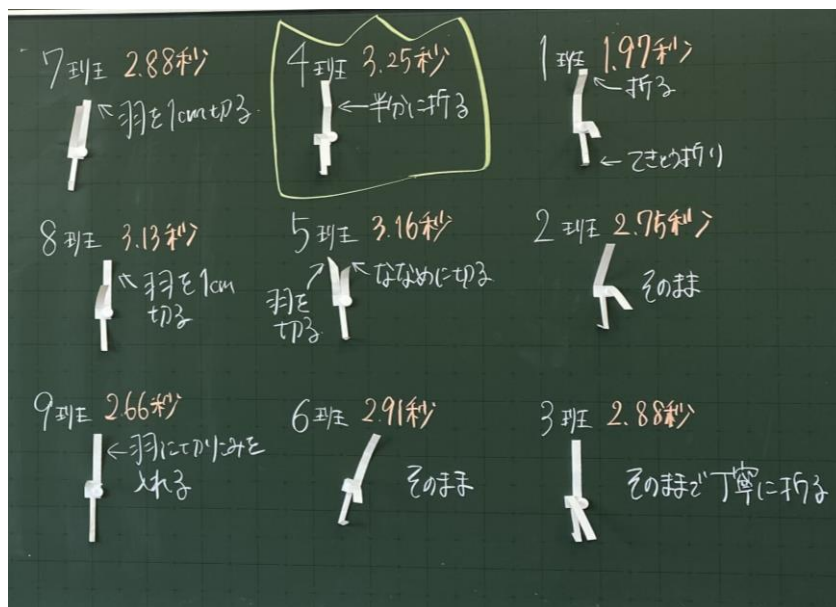 7班 2.88秒
羽を1cm切る
4班 3.25秒
半分に折る
1班 1.97秒
折る
てきとう折り
8班 3.13秒
羽を1cm
切る
5班 3.16秒
ななめに切る
羽を
切る
2班 2.75秒
そのまま
9班 2.66秒
羽に切りこみを
入れる
6班 2.91秒
そのまま
3班 2.88秒
そのままで丁寧に折る